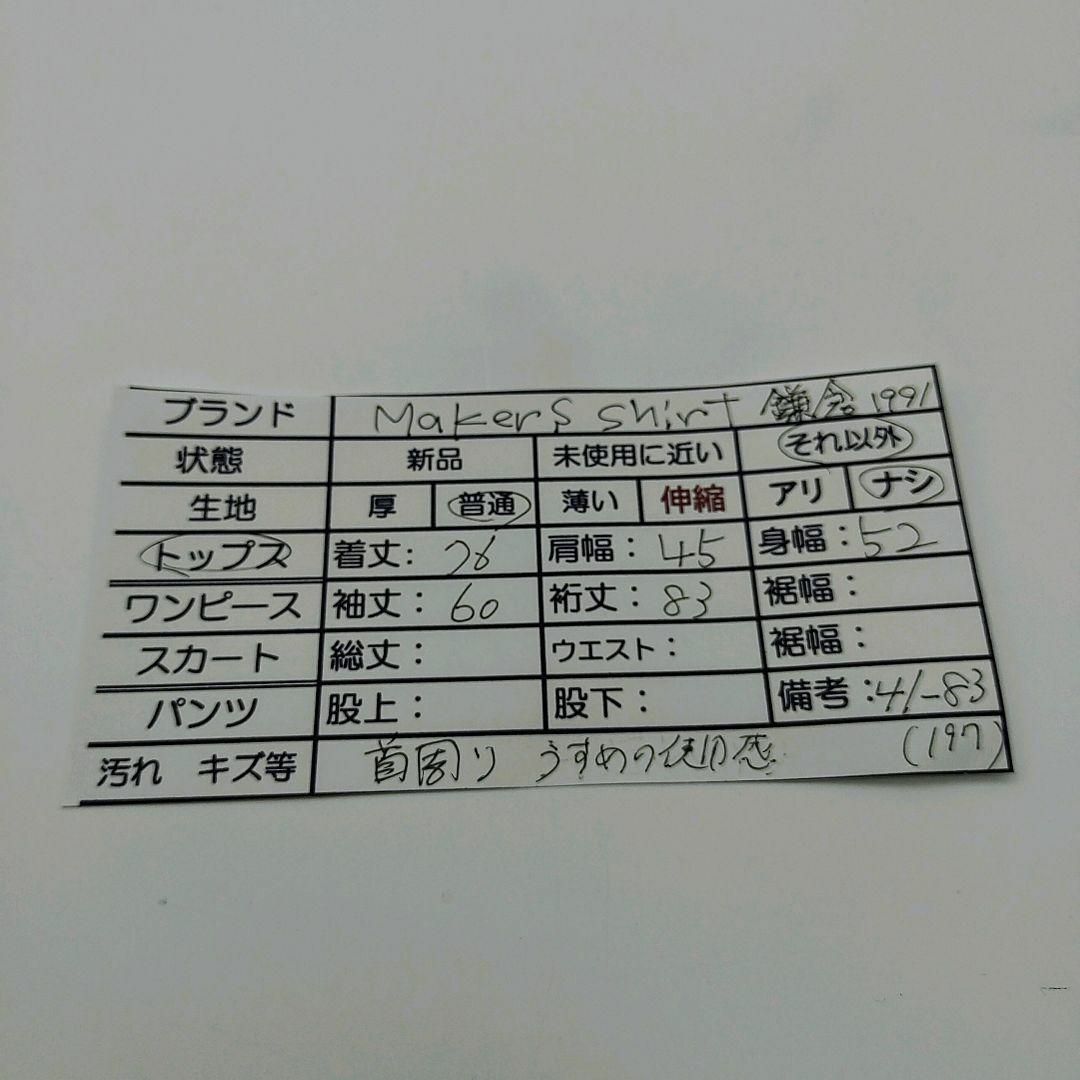 ブランド Makers Shirt 鎌倉 1991
状態 新品 未使用に近い それ以外
生地 厚 普通 薄い 伸縮 アリ ナシ
トップス 着丈: 76 肩幅: 45 身幅: 52
ワンピース 袖丈: 60 裄丈: 83 裾幅:
スカート 総丈: ウエスト: 裾幅:
パンツ 股上: 股下: 備考: 41-83
汚れ キズ等 首周り うすめの使用感 (197)